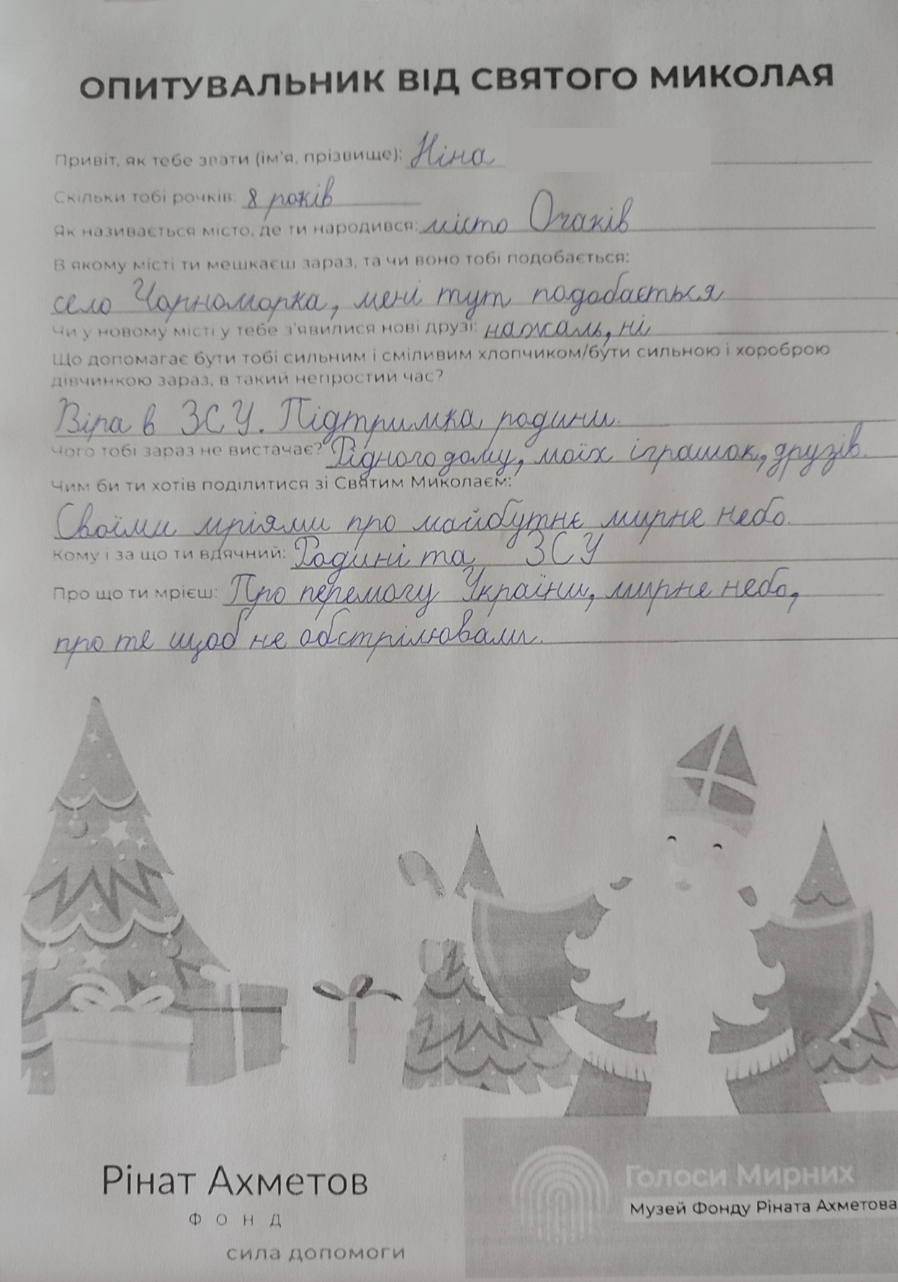 ОПИТУВАЛЬНИК ВІД СВЯТОГО МИКОЛАЯ
Привіт, як тебе звати (ім'я, прізвище): Ніна
Скільки тобі рочків: 8 років
Як називається місто, де ти народився: місто Очаків
В якому місті ти мешкаєш зараз, та чи воно тобі подобається:
село Чорноморка, мені тут подобається
Чи у новому місті у тебе з'явилися нові друзі: нажаль, ні
Що допомагає бути тобі сильним і сміливим хлопчиком/бути сильною і хороброю
дівчинкою зараз, в такий непростий час?
Віра в ЗСУ. Підтримка родини.
Чого тобі зараз не вистачає? Рідного дому, моїх іграшок, друзів.
Чим би ти хотів поділитися зі Святим Миколаєм:
Своїми мріями про майбутнє мирне небо.
Кому і за що ти вдячний: Родині та ЗСУ
Про що ти мрієш: Про перемогу України, мирне небо,
про те щоб не обстрілювали.
Рінат Ахметов
ФОНД
сила допомоги
Голоси Мирних
Музей Фонду Ріната Ахметова